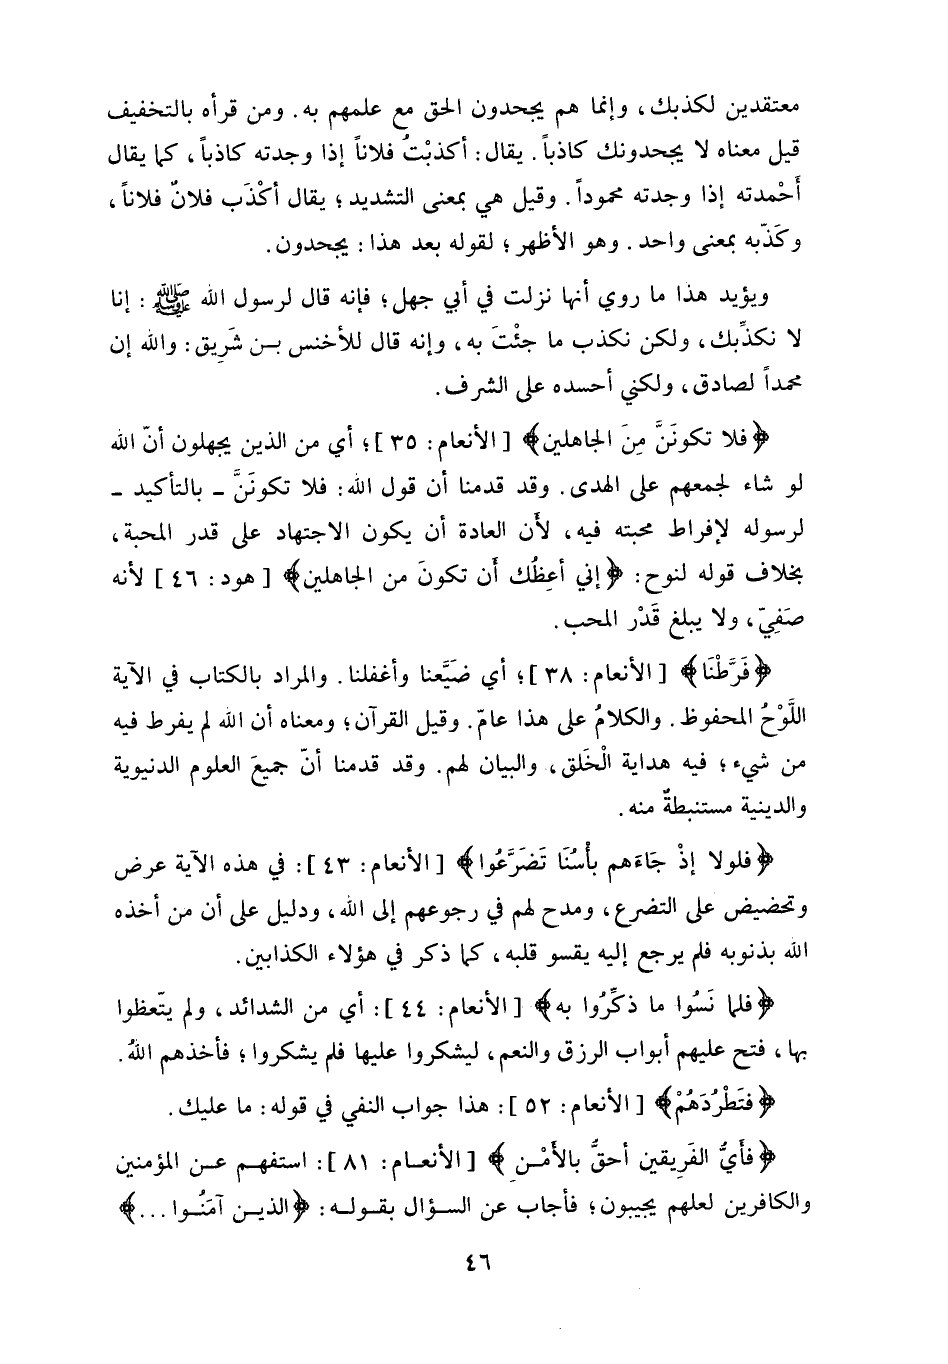 معتقدين لكذبك، وإنما هم يجحدون الحق مع علمهم به. ومن قرأه بالتخفيف
قيل معناه لا يجحدونك كاذباً. يقال: أكذبْتُ فلاناً إذا وجدته كاذباً، كما يقال
أَحْمدته إذا وجدته محموداً. وقيل هي بمعنى التشديد؛ يقال أكْذَب فلانٌ فلاناً،
وكَذّبه بمعنى واحد. وهو الأظهر؛ لقوله بعد هذا: يجحدون.
ويؤيد هذا ما روي أنها نزلت في أبي جهل؛ فإنه قال لرسول الله ﷺ: إنا
لا نكذِّبك، ولكن نكذب ما جئْتَ به، وإنه قال للأخنس بن شَرِيق: والله إن
محمداً لصادق، ولكني أحسده على الشرف.
﴿فلا تكونَنَّ مِنَ الجاهلين﴾ [الأنعام: ٣٥]؛ أي من الذين يجهلون أنّ الله
لو شاء لجمعهم على الهدى. وقد قدمنا أن قول الله: فلا تكونَنَّ ـ بالتأكيد ـ
لرسوله لإفراط محبته فيه، لأَن العادة أن يكون الاجتهاد على قدر المحبة،
بخلاف قوله لنوح: ﴿إني أعِظُك أَن تكونَ من الجاهلين﴾ [هود: ٤٦] لأنه
صَفِيّ، ولا يبلغ قَدْر المحب.
﴿فَرَّطْنَا﴾ [الأنعام: ٣٨]؛ أي ضَيَّعنا وأغفلنا. والمراد بالكتاب في الآية
اللَّوْحُ المحفوظ. والكلامُ على هذا عامّ. وقيل القرآن؛ ومعناه أن الله لم يفرط فيه
من شيء؛ فيه هداية الْخَلق، والبيان لهم. وقد قدمنا أنّ جميعَ العلوم الدنيوية
والدينية مستنبطةٌ منه.
﴿فلولا إذْ جَاءَهم بأْسُنَا تَضَرَّعُوا﴾ [الأنعام: ٤٣]: في هذه الآية عرض
وتحضيض على التضرع، ومدح لهم في رجوعهم إلى الله، ودليل على أن من أخذه
الله بذنوبه فلم يرجع إليه يقسو قلبه، كما ذكر في هؤلاء الكذابين.
﴿فلما نَسُوا ما ذكِّرُوا به﴾ [الأنعام: ٤٤]: أي من الشدائد، ولم يتّعظوا
بها، فتح عليهم أبواب الرزق والنعم، ليشكروا عليها فلم يشكروا؛ فأخذهم اللهُ.
﴿فتَطْرُدَهُمْ﴾ [الأنعام: ٥٢]: هذا جواب النفي في قوله: ما عليك.
﴿فأَيُّ الفَرِيقين أحقُّ بالأَمْنِ﴾ [الأنعام: ٨١]: استفهم عن المؤمنين
والكافرين لعلهم يجيبون؛ فأجاب عن السؤال بقوله: ﴿الذين آمَنُوا ...﴾
٤٦